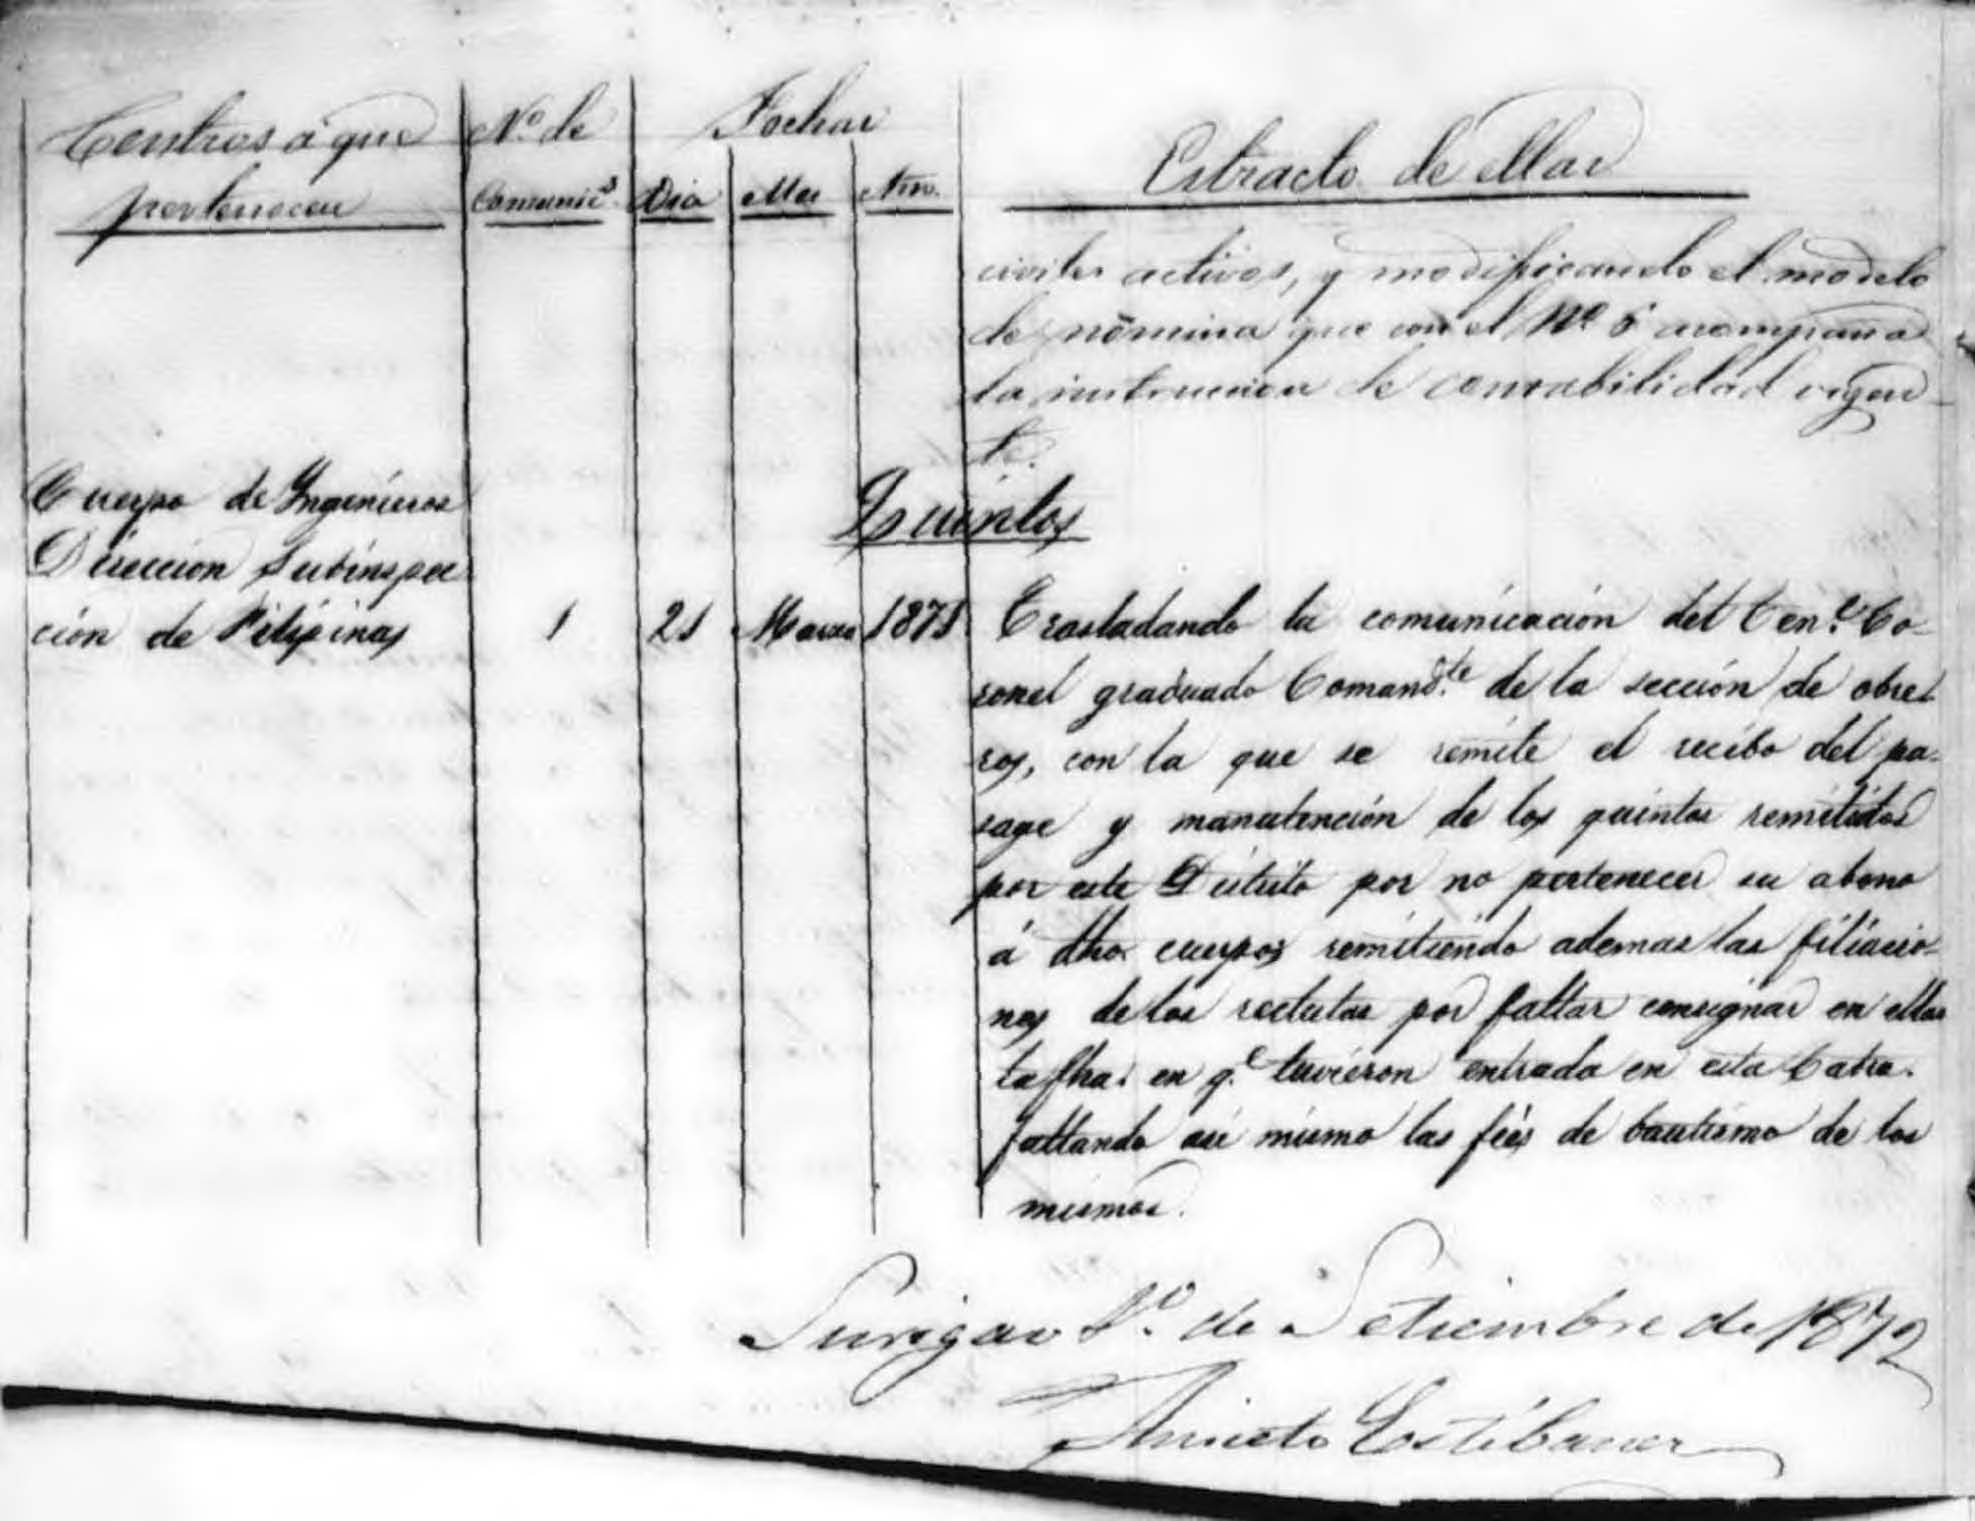 Centros a que
pertenecen
Nº de
Comunics
Fechas
Dia
Mes
Año.
Estracto de ellas
civiles activos, y modificando el modelo
de nómina que con el Nº 6 acompaña
la instruccion de contabilidad vigen-
te.
Quintos
Cuerpo de Ingenieros
Direccion Subinspec
cion de Filipinas
1 21 Marzo 1871
Trasladando la comunicación del Ten.e Co-
ronel graduado Comand.te de la sección de obre-
ros, con la que se remite el recibo del pa-
sage y manutención de los quintos remitidos
por este Distrito por no pertenecer su abono
á dho. cuerpo; remitiendo ademas las filiacio-
nes de los reclutas por faltar consignar en ellas
la fha. en q.e tuvieron entrada en esta Cabra.
faltando asi mismo las feés de bautismo de los
mismos.
Surigao 1º de Setiembre de 1872
Aniceto Estébanez